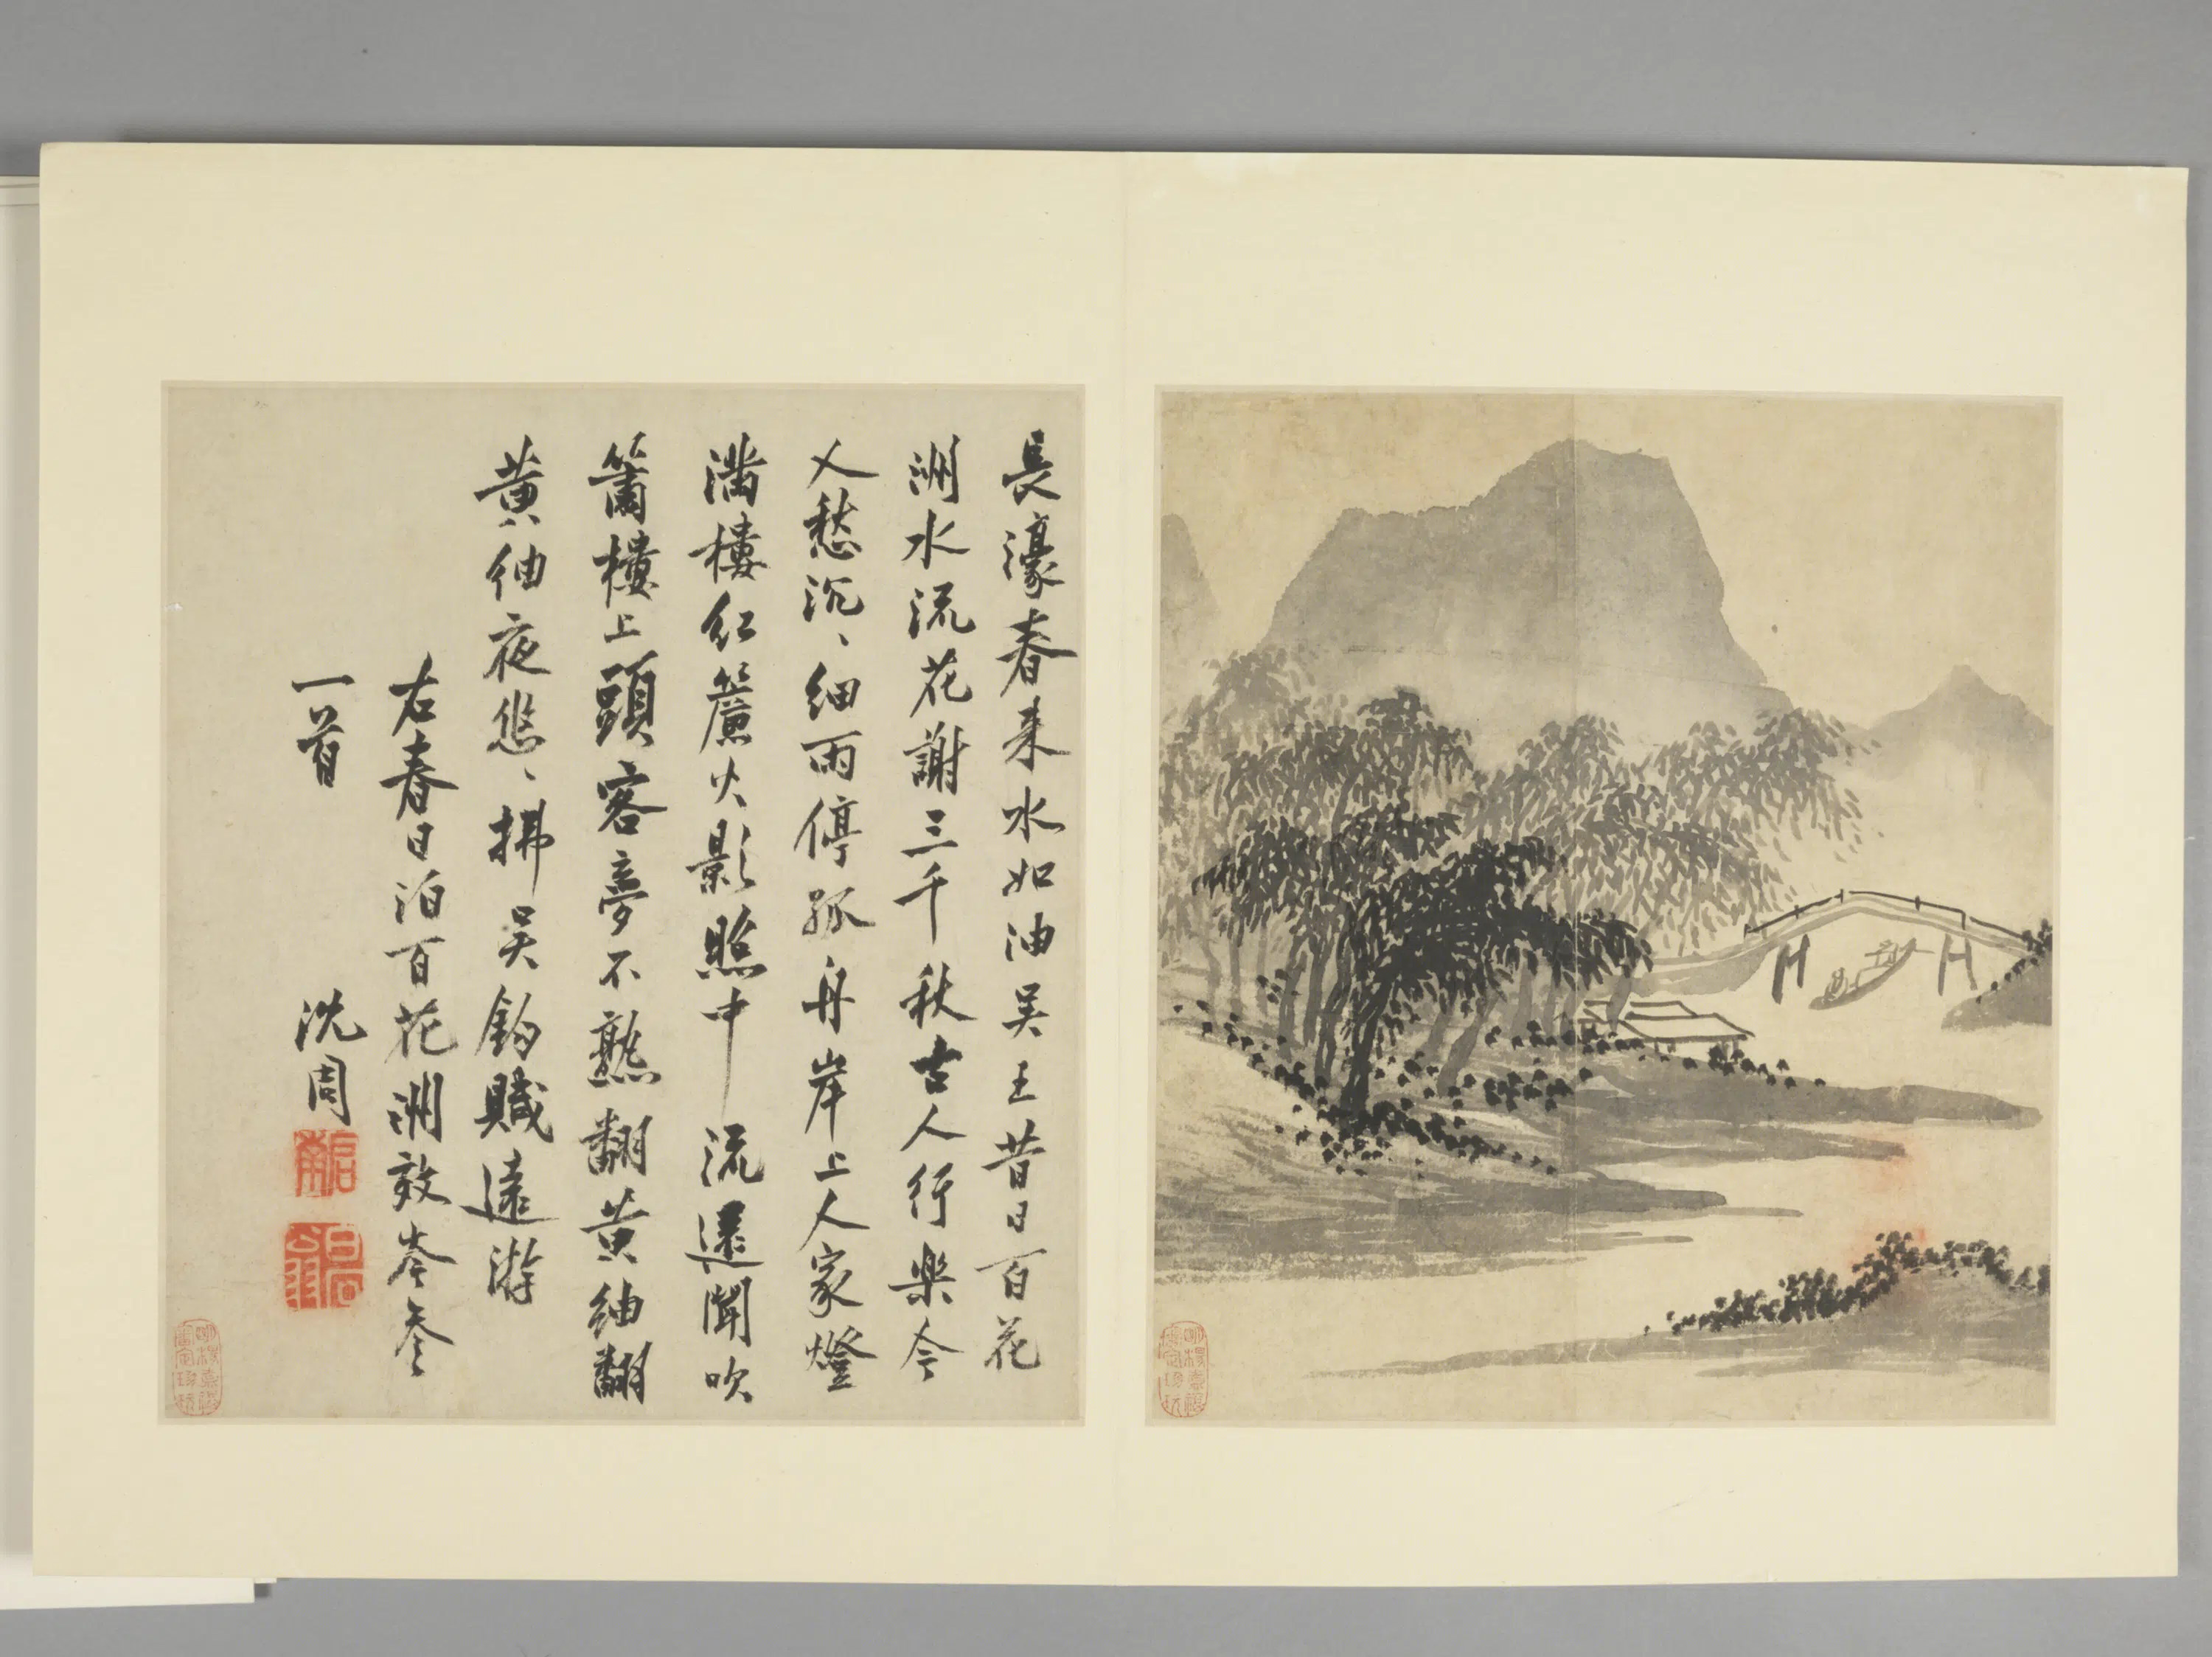 長濠春来水如油吴王昔日百花
洲水流花謝三千秋古人行樂今
人愁沉、細雨停孤舟岸上人家燈
滿樓紅簾火影照中流還聞吹
簫樓上頭客夢不熟翻黄紬翻
黄紬夜悠、拂吴鈎賦遠游
右春日泊百花洲效岑參
一首
沈周
啓南
白石翁